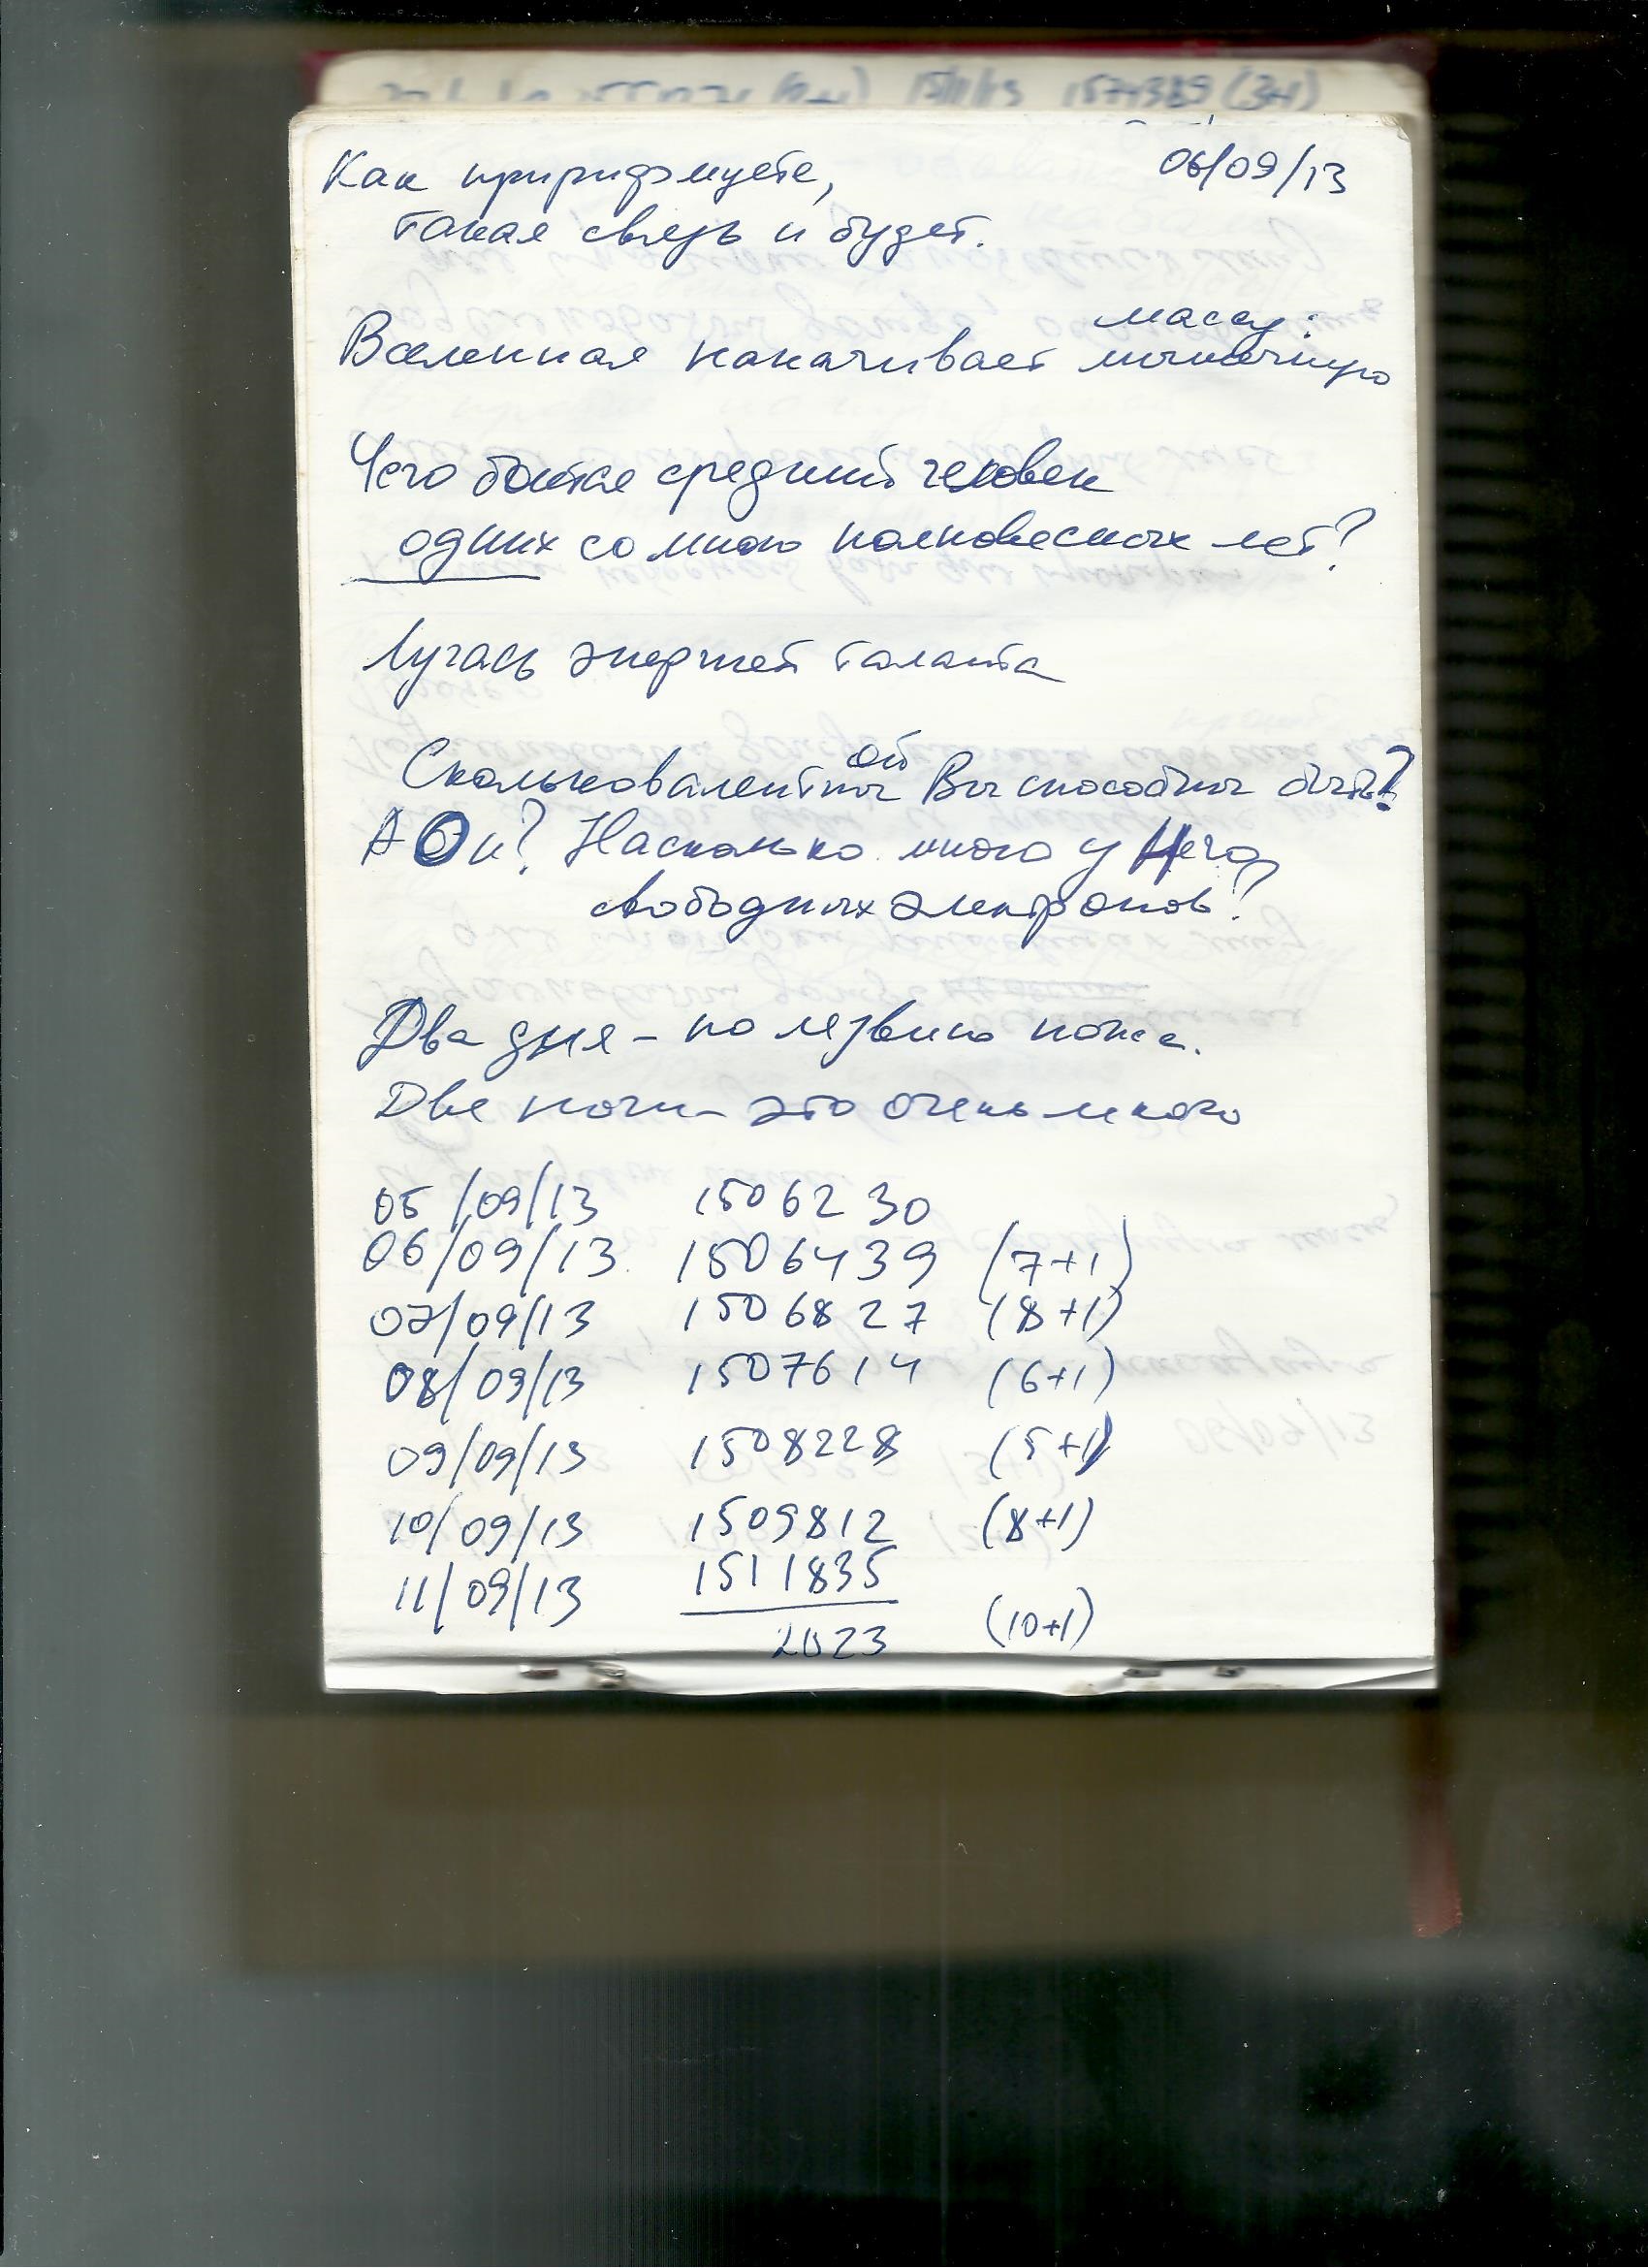 06/09/13
Как пририфмуете,
такая связь и будет.
массу:
Вселенная накачивает мышечную
Чего боится средний человек
одних со мною полновесных лет?
Лучась энергией таланта
ой
Скольковалентны Вы способны быть?
А Он? Насколько много у Него
свободных электронов?
Два дня – по лезвию ножа.
Две ночи – это очень много
05/09/13 1506230
06/09/13 1506439 (7+1)
07/09/13 1506827 (8+1)
08/09/13 1507614 (6+1)
09/09/13 1508228 (5+1)
10/09/13 1509812 (8+1)
11/09/13 1511835
2023 (10+1)